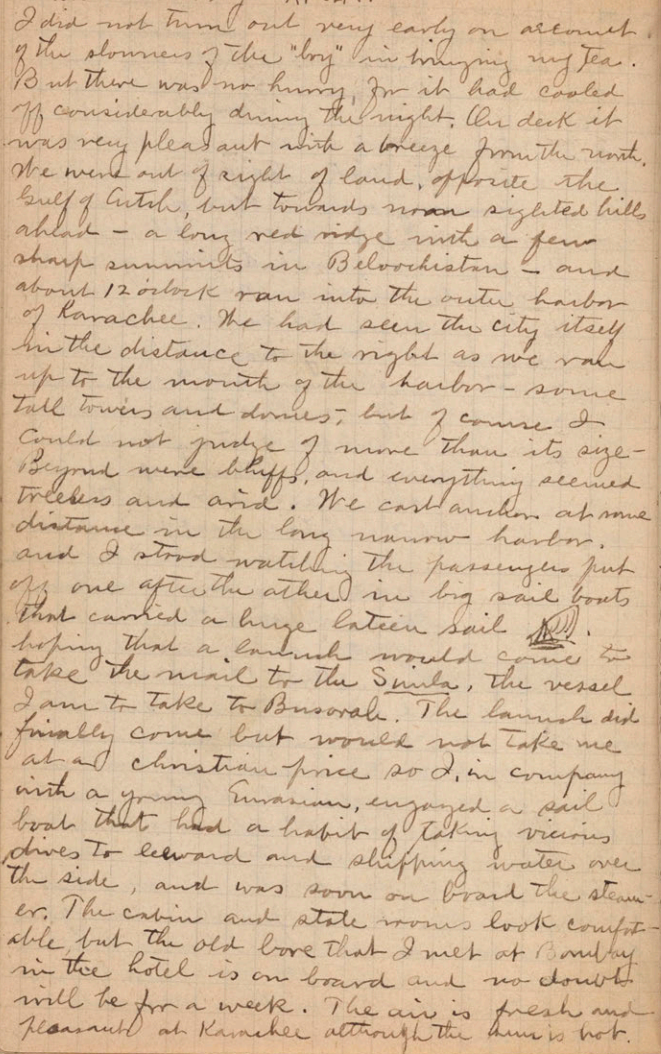 I did not turn out very early on account
of the slowness of the "boy" in bringing my tea.
But there was no hurry, for it had cooled
off considerably during the night. On deck it
was very pleasant with a breeze from the north.
We were out of sight of land, opposite the
Gulf of Cutch, but towards noon sighted hills
ahead – a long red ridge with a few
sharp summits in Beloochistan – and
about 12 o'clock ran into the outer harbor
of Karachee. We had seen the city itself
in the distance to the right as we ran
up to the mouth of the harbor – some
tall towers and domes, but of course I
could not judge of more than its size –
Beyond were bluffs, and everything seemed
treeless and arid. We cast anchor at some
distance in the long narrow harbor.
and I stood watching the passengers put
off one after the other in big sail boats
that carried a huge lateen sail .
hoping that a launch would come to
take the mail to the Simla, the vessel
I am to take to Busorah. The launch did
finally come but would not take me
at a christian price so I, in company
with a young Eurasian, engaged a sail
boat that had a habit of taking vicious
dives to leeward and shipping water over
the side, and was soon on board the steam-
er. The cabin and state rooms look comfort-
able, but the old bore that I met at Bombay
in the hotel is on board and no doubt
will be for a week. The air is fresh and
pleasant at Karachee although the sun is hot.